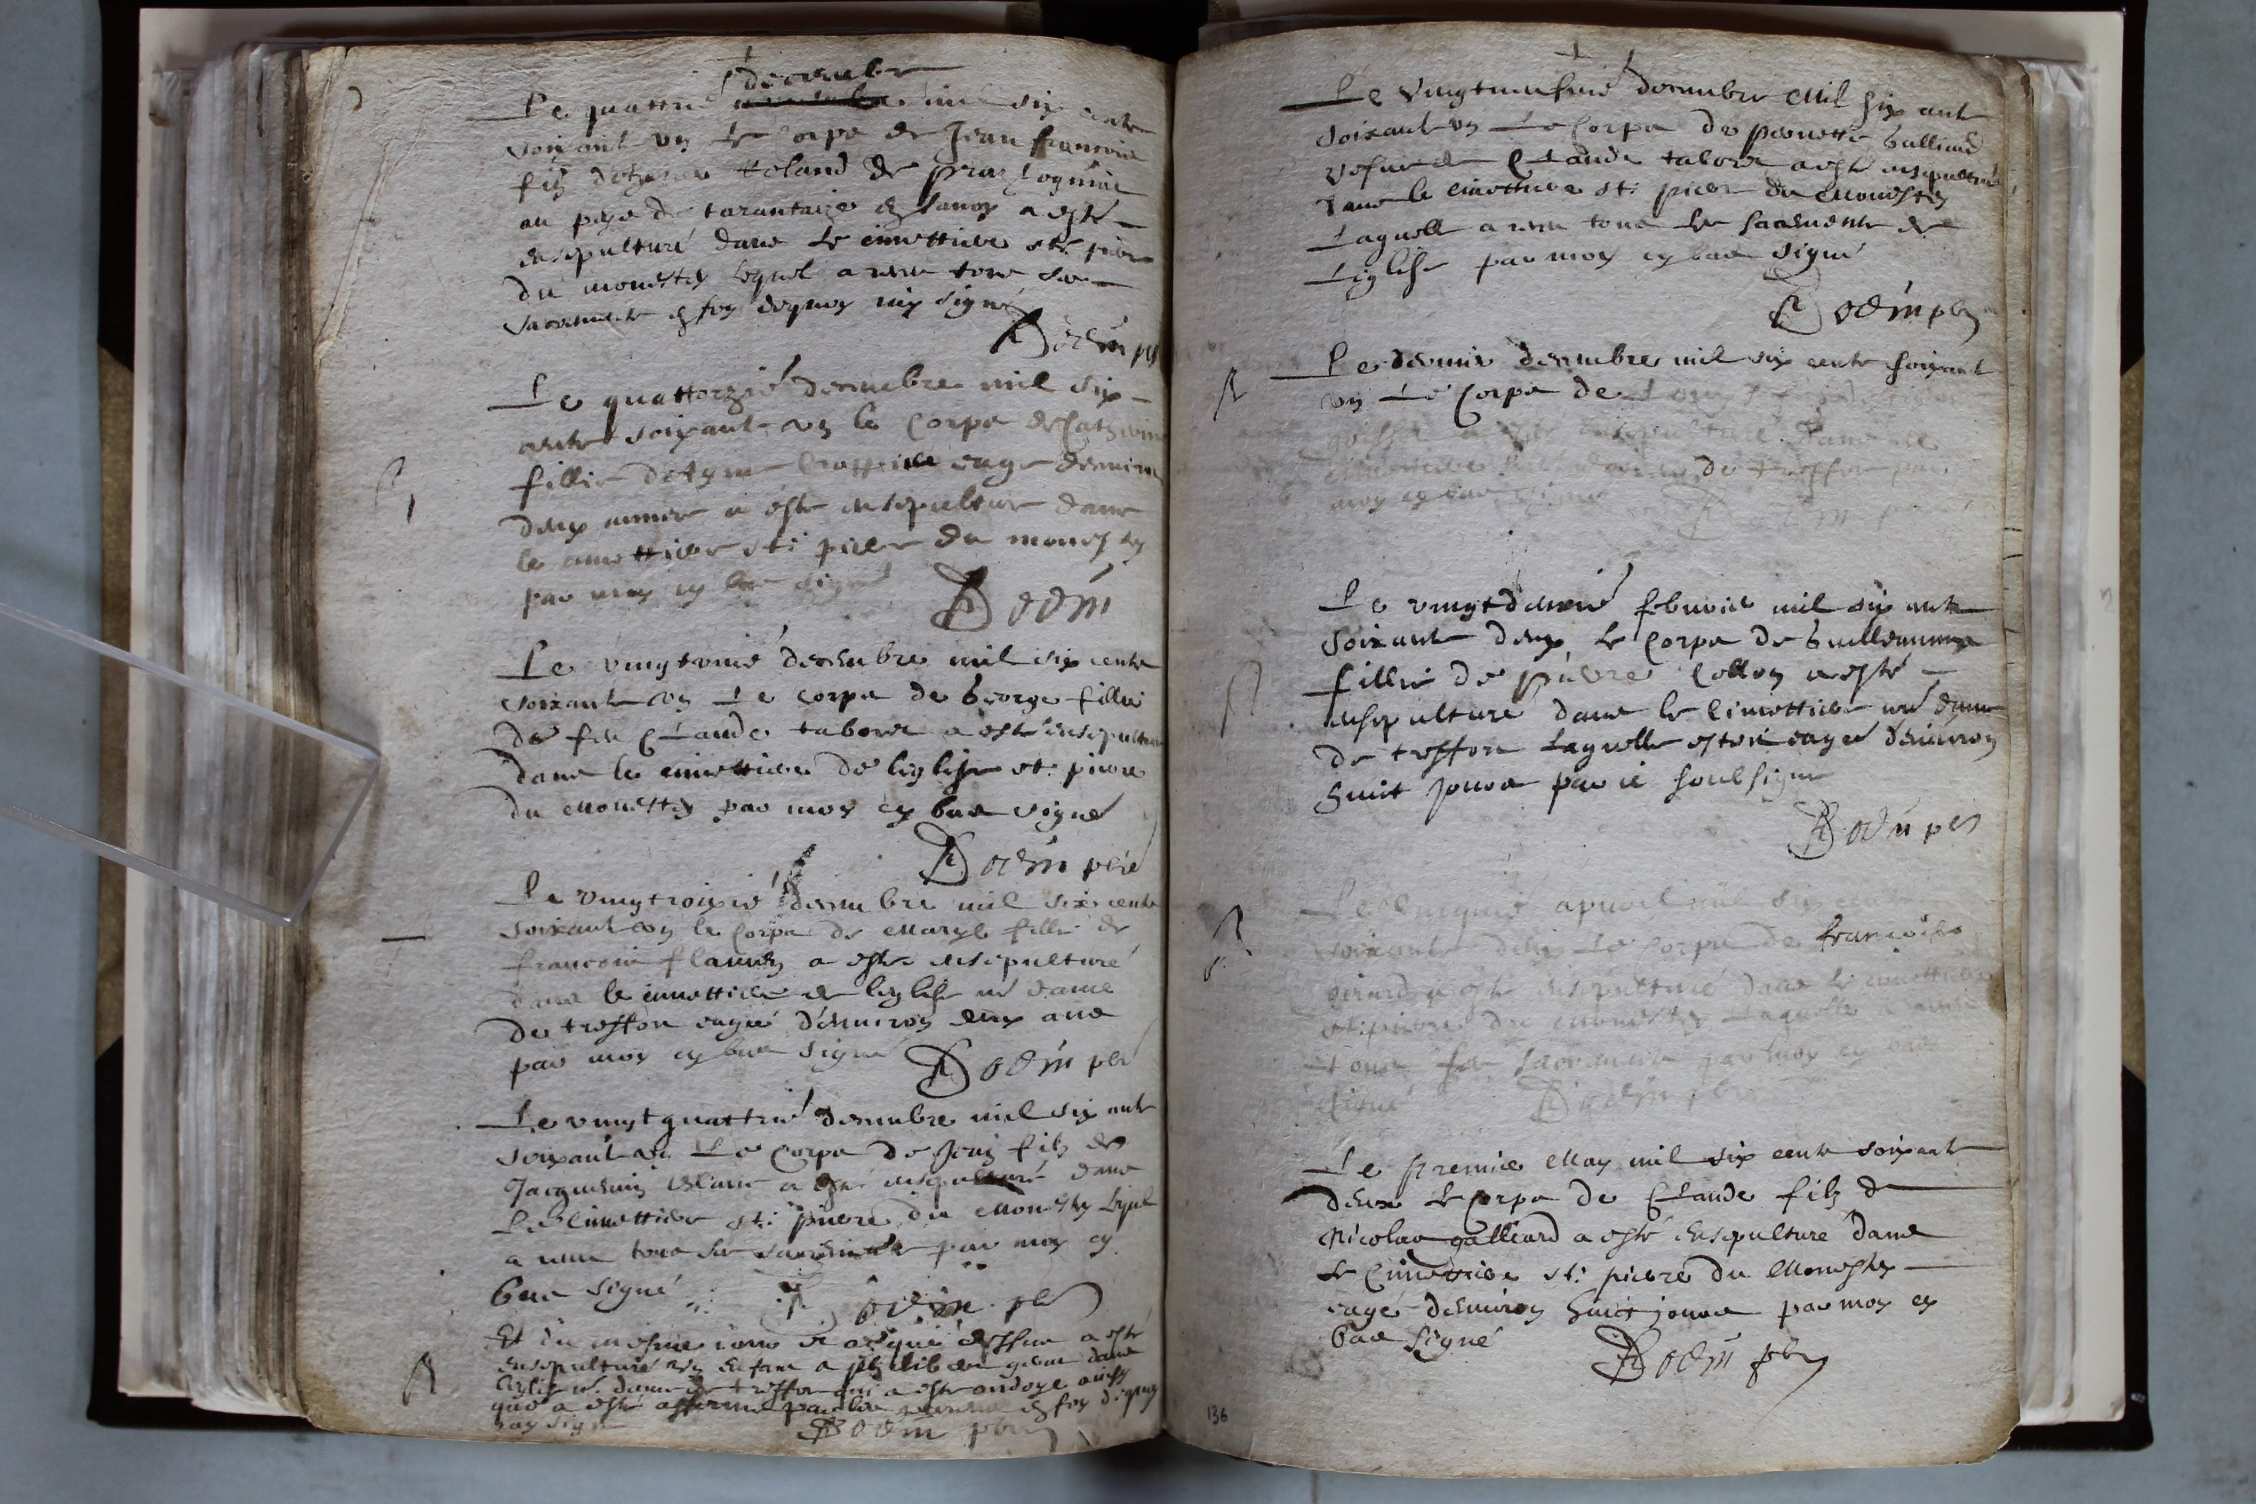 decembre
Le quattrie mil six cents
soixant un Le corps de Jean francois
filz de roland de
au pays de tarantaize en savoy a esté
ensepulturé dans le cimettiere st: pierre
du monestey lequel a receu tous ses
sacrements en foy dequoy my signé
Bodin pb
Le quattorzié decembre mil six
cents soixant un le Corps de Catherine
fillie de eagé denviron
deux annees a esté ensepulturé dans
le cimettiere st: pierre du monestey
par moy cy bas signé
Bodin
Le decembre mil six cents
soixant un Le corps de George fillie
de feu Claude tabore a esté ensepulturé
dans le cimettiere de leglise st: pierre
du Monestey par moy cy bas signé
Bodin pbre
Le vingtroizié decembre mil six cents
soixant un le Corps de Marye fillie de
francois a esté ensepulturé
dans le cimettiere de leglise nre dame
de treffort eagée denviron deux ans
par moy cy bas signé Bodin pbr
Le vingtquattrié decembre mil six cents
soixant un Le Corps de filz de
Jacquemin a esté ensepulturé dans
Le Cimettiere st: pierre du Monestey lequel
a receu tous ses sacrements par moy cy
bas signé Bodin pbr
Et du mesme jour dessus a esté
ensepulturé un enfant a dans
leglise nre dame de treffort qui a esté ondoyé ainsy
que a esté affermé par en foy dequoy
jay signé Bodin pbr
Le decembre Mil six cents
soixant un Le Corps de pernette Galliard
vefve de Claude tabore a esté ensepulturée
dans le cimettiere st: pierre du Monestey
Laquelle a receu tous les sacrements de
Leglise par moy cy bas signé
Bodin pbr
Le dernier decembre mil six cents soixant
un Le Corps de
a esté ensepulturé dans le
cimettiere de treffort par
moy cy bas signé Bodin
Le febvrier mil six cents
soixant deux le Corps de Guillemma
fillie de pierre Collon a esté
ensepulturé dans le Cimettiere nre dame
de treffort Laquelle estoit eagée denviron
huit jours par je soubsigné
Bodin pbr
Le cinquié apvril mil six cents
soixant deux Le Corps de francoise
a esté ensepulturé dans le cimettiere
st: pierre du monestey Laquelle a receu
tous ses sacrements par moy cy bas
signé Bodin pbr
Le premier May mil six cents soixant
deux Le Corps de Claude filz de
Nicolas galliard a esté ensepulturé dans
Le Cimettiere st: pierre du Monestey
eagé denviron huit jours par moy cy
bas signé
Bodin pbr
136